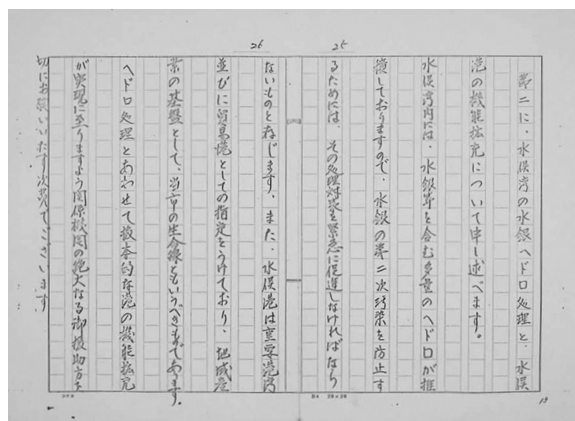 第二に、水俣湾の水銀ヘドロ処理と、水俣
港の機能拡充について申し述べます。
水俣湾内には、水銀等を含む多量のヘドロが堆
積しておりますので、水銀の第二次汚染を防止す
るためには、その処理対策を緊急に促進しなければなら
ないものと存じます。また、水俣港は重要港湾
並びに貿易港としての指定をうけており、地域産
業の基盤として、当市の生命線ともいうべきものであります。
ヘドロ処理とあわせて抜本的な港の機能拡充
が実現に至りますよう関係機関の絶大なる御援助方を
切にお願いいたす次第でございます。
25
26
B4 20×20
13